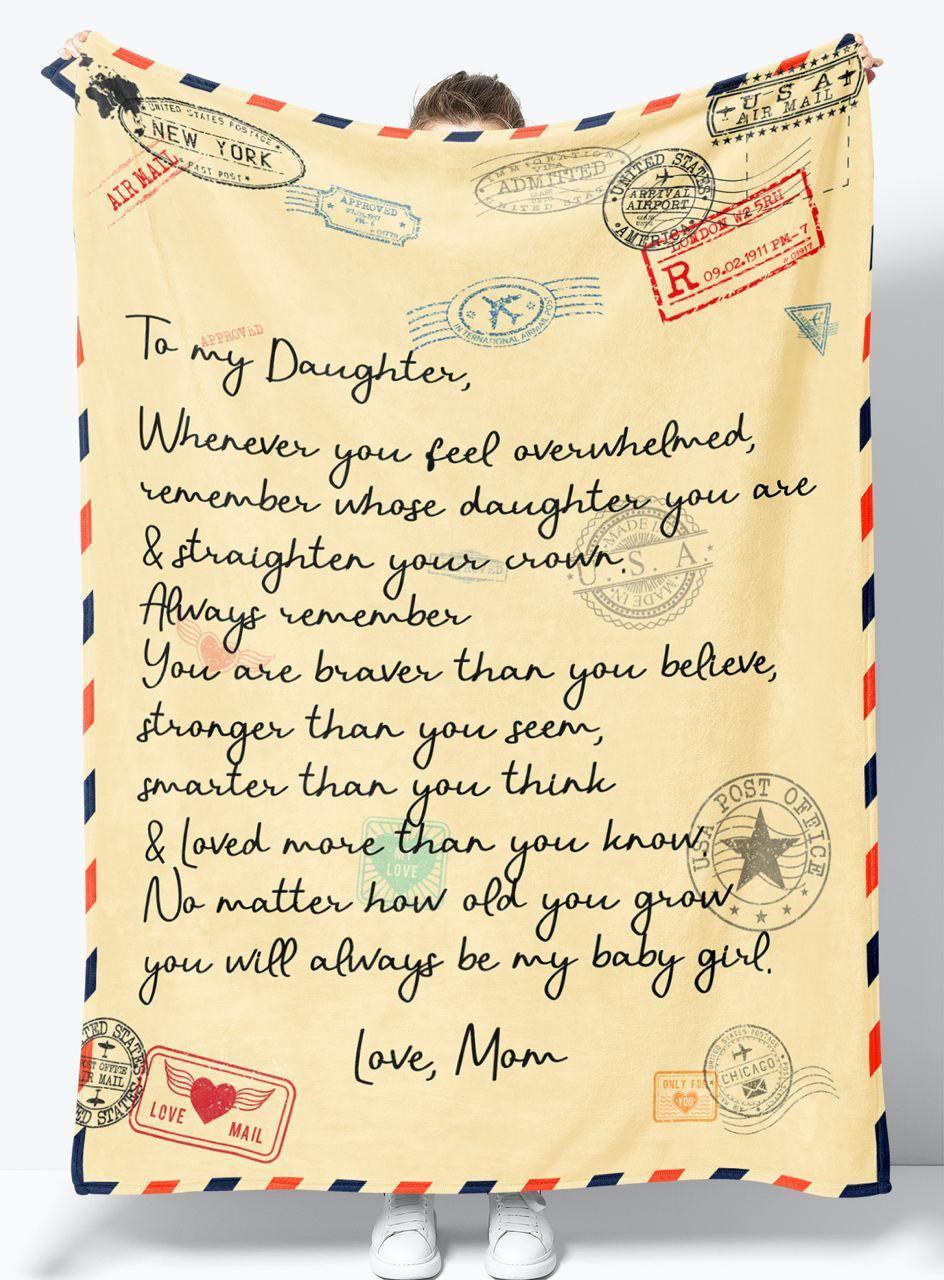 UNITED STATES POSTAGE
NEW YORK
FAST POST
AIR MAIL
APPROVED
IMMIGRATION
ADMITTED
UNITED STATES
UNITED STATES
ARRIVAL
AIRPORT
AMERICA
U S A
AIR MAIL
LONDON W2 5RH
R 09.02.1911 PM-7
# 01917
INTERNATIONAL AIRMAIL POST
APPROVED
To my Daughter,
Whenever you feel overwhelmed,
remember whose daughter you are
& straighten your crown.
Always remember
You are braver than you believe,
stronger than you seem,
smarter than you think
& Loved more than you know.
No matter how old you grow
you will always be my baby girl.
Love, Mom
MADE IN
U. S. A.
MADE IN
APPROVED
MY
LOVE
USA POST OFFICE
TED STATES
POST OFFICE
IR MAIL
ED STATES
LOVE
MAIL
ONLY FOR
YOU
UNITED STATES POSTAGE
CHICAGO
AIR MAIL